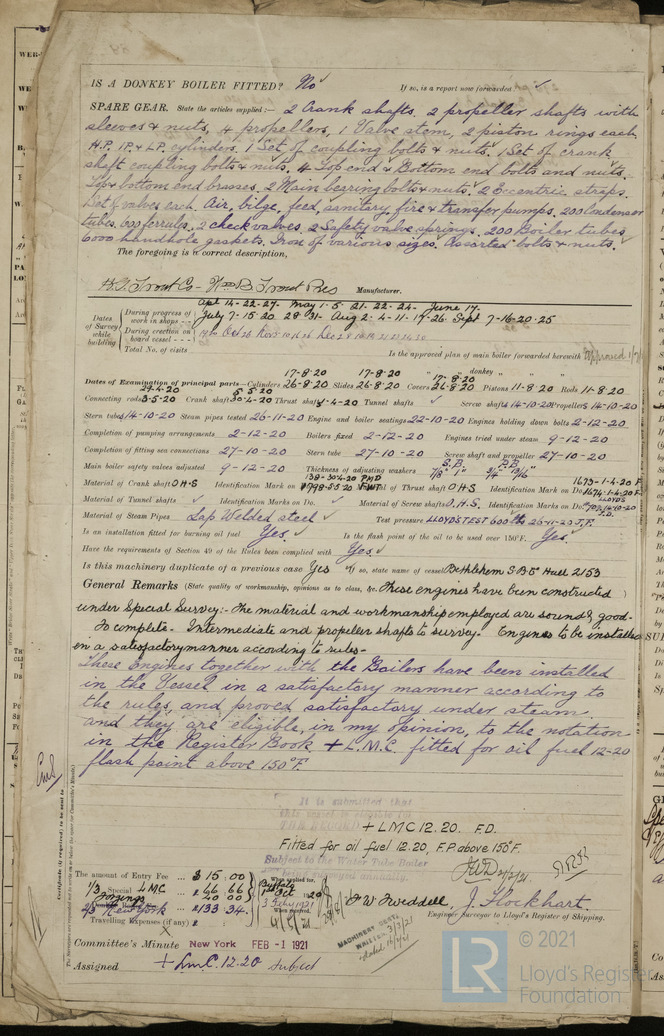 IS A DONKEY BOILER FITTED? No If so, is a report now forwarded
SPARE GEAR. State the articles supplied :— 2 Crank shafts. 2 propeller shafts with
sleeves & nuts, 4 propellers, 1 Valve stem, 2 piston rings each
H.P. I.P. & L.P. cylinders. 1 Set of coupling bolts & nuts. 1 Set of crank
shaft coupling bolts & nuts. 4 Top end & Bottom end bolts and nuts.
Top & bottom end brasses. 2 Main bearing bolts & nuts. 2 Eccentric straps.
Set of valves each Air, bilge, feed, sanitary, fire & transfer pumps. 200 Condenser
tubes. 600 ferrules. 2 check valves. 2 Safety valve springs. 200 Boiler tubes
6000 handhole gaskets. Iron of various sizes. Assorted bolts & nuts.
The foregoing is a correct description,
H.G. Trout Co - Wm B Trout Pres Manufacturer.
Dates of Survey while building
During progress of work in shops - - Apr 14-22-27. May 1-5-21-22-24. June 17.
July 7-15-20 28-31- Aug 2-4-11-17-26 Sept 7-16-20-25
During erection on board vessel - - -
Total No. of visits
Is the approved plan of main boiler forwarded herewith
" " " donkey " " "
Dates of Examination of principal parts—Cylinders 17-8-20 26-8-20 Slides 17-8-20 26-8-20 Covers 17-8-20 26-8-20 Pistons 11-8-20 Rods 11-8-20
Connecting rods 3-5-20 Crank shaft 30-4-20 Thrust shaft Tunnel shafts Screw shafts 14-10-20 Propellers 14-10-20
Stern tubes 14-10-20 Steam pipes tested 26-11-20 Engine and boiler seatings 22-10-20 Engines holding down bolts 2-12-20
Completion of pumping arrangements 2-12-20 Boilers fixed 2-12-20 Engines tried under steam 9-12-20
Completion of fitting sea connections 27-10-20 Stern tube 27-10-20 Screw shaft and propeller 27-10-20
Main boiler safety valves adjusted 9-12-20 Thickness of adjusting washers S.B. 7/8" 1" P.B. 3/4" 13/16"
Material of Crank shaft O.H.S Identification Mark on Do. Material of Thrust shaft O.H.S. Identification Mark on Do.
Material of Tunnel shafts Identification Marks on Do. Material of Screw shafts O.H.S. Identification Marks on Do.
Material of Steam Pipes Lap Welded steel Test pressure LLOYDS TEST 600 lbs 26-11-20 J.F.
Is an installation fitted for burning oil fuel Yes. Is the flash point of the oil to be used over 150°F. Yes
Have the requirements of Section 49 of the Rules been complied with Yes
Is this machinery duplicate of a previous case Yes If so, state name of vessel Bethlehem S.B.Co Hull 2153
General Remarks (State quality of workmanship, opinions as to class, &c. These engines have been constructed
under Special Survey:- The material and workmanship employed are sound & good.
To complete - Intermediate and propeller shafts to survey. Engines to be installed
in a satisfactory manner according to rules-
These Engines together with the Boilers have been installed
in the Vessel in a satisfactory manner according to
the rules, and proved satisfactory under steam
and they are eligible, in my opinion, to the notation
in the Register Book + L.M.C. fitted for oil fuel 12-20
flash point above 150°F.
It is submitted that
this vessel is eligible for
THE RECORD + LMC 12.20. F.D.
Fitted for oil fuel 12.20, F.P. above 150°F.
Subject to the Water Tube Boiler
being surveyed annually.
The amount of Entry Fee ... $ 15.00
1/3 Special LMC ... $ 66.66
20 00
2/3 New York ... $ 133.34.
Travelling Expenses (if any) $
When applied for,
Buffalo
When received,
W Tweddell J. Flockhart
Engineer Surveyor to Lloyd's Register of Shipping.
MACHINERY CERTI.
WRITTEN 3/3/21
Committee's Minute New York FEB -1 1921
Assigned + L.M.C. 12-20 subject
© 2021
LR Lloyd's Register
Foundation